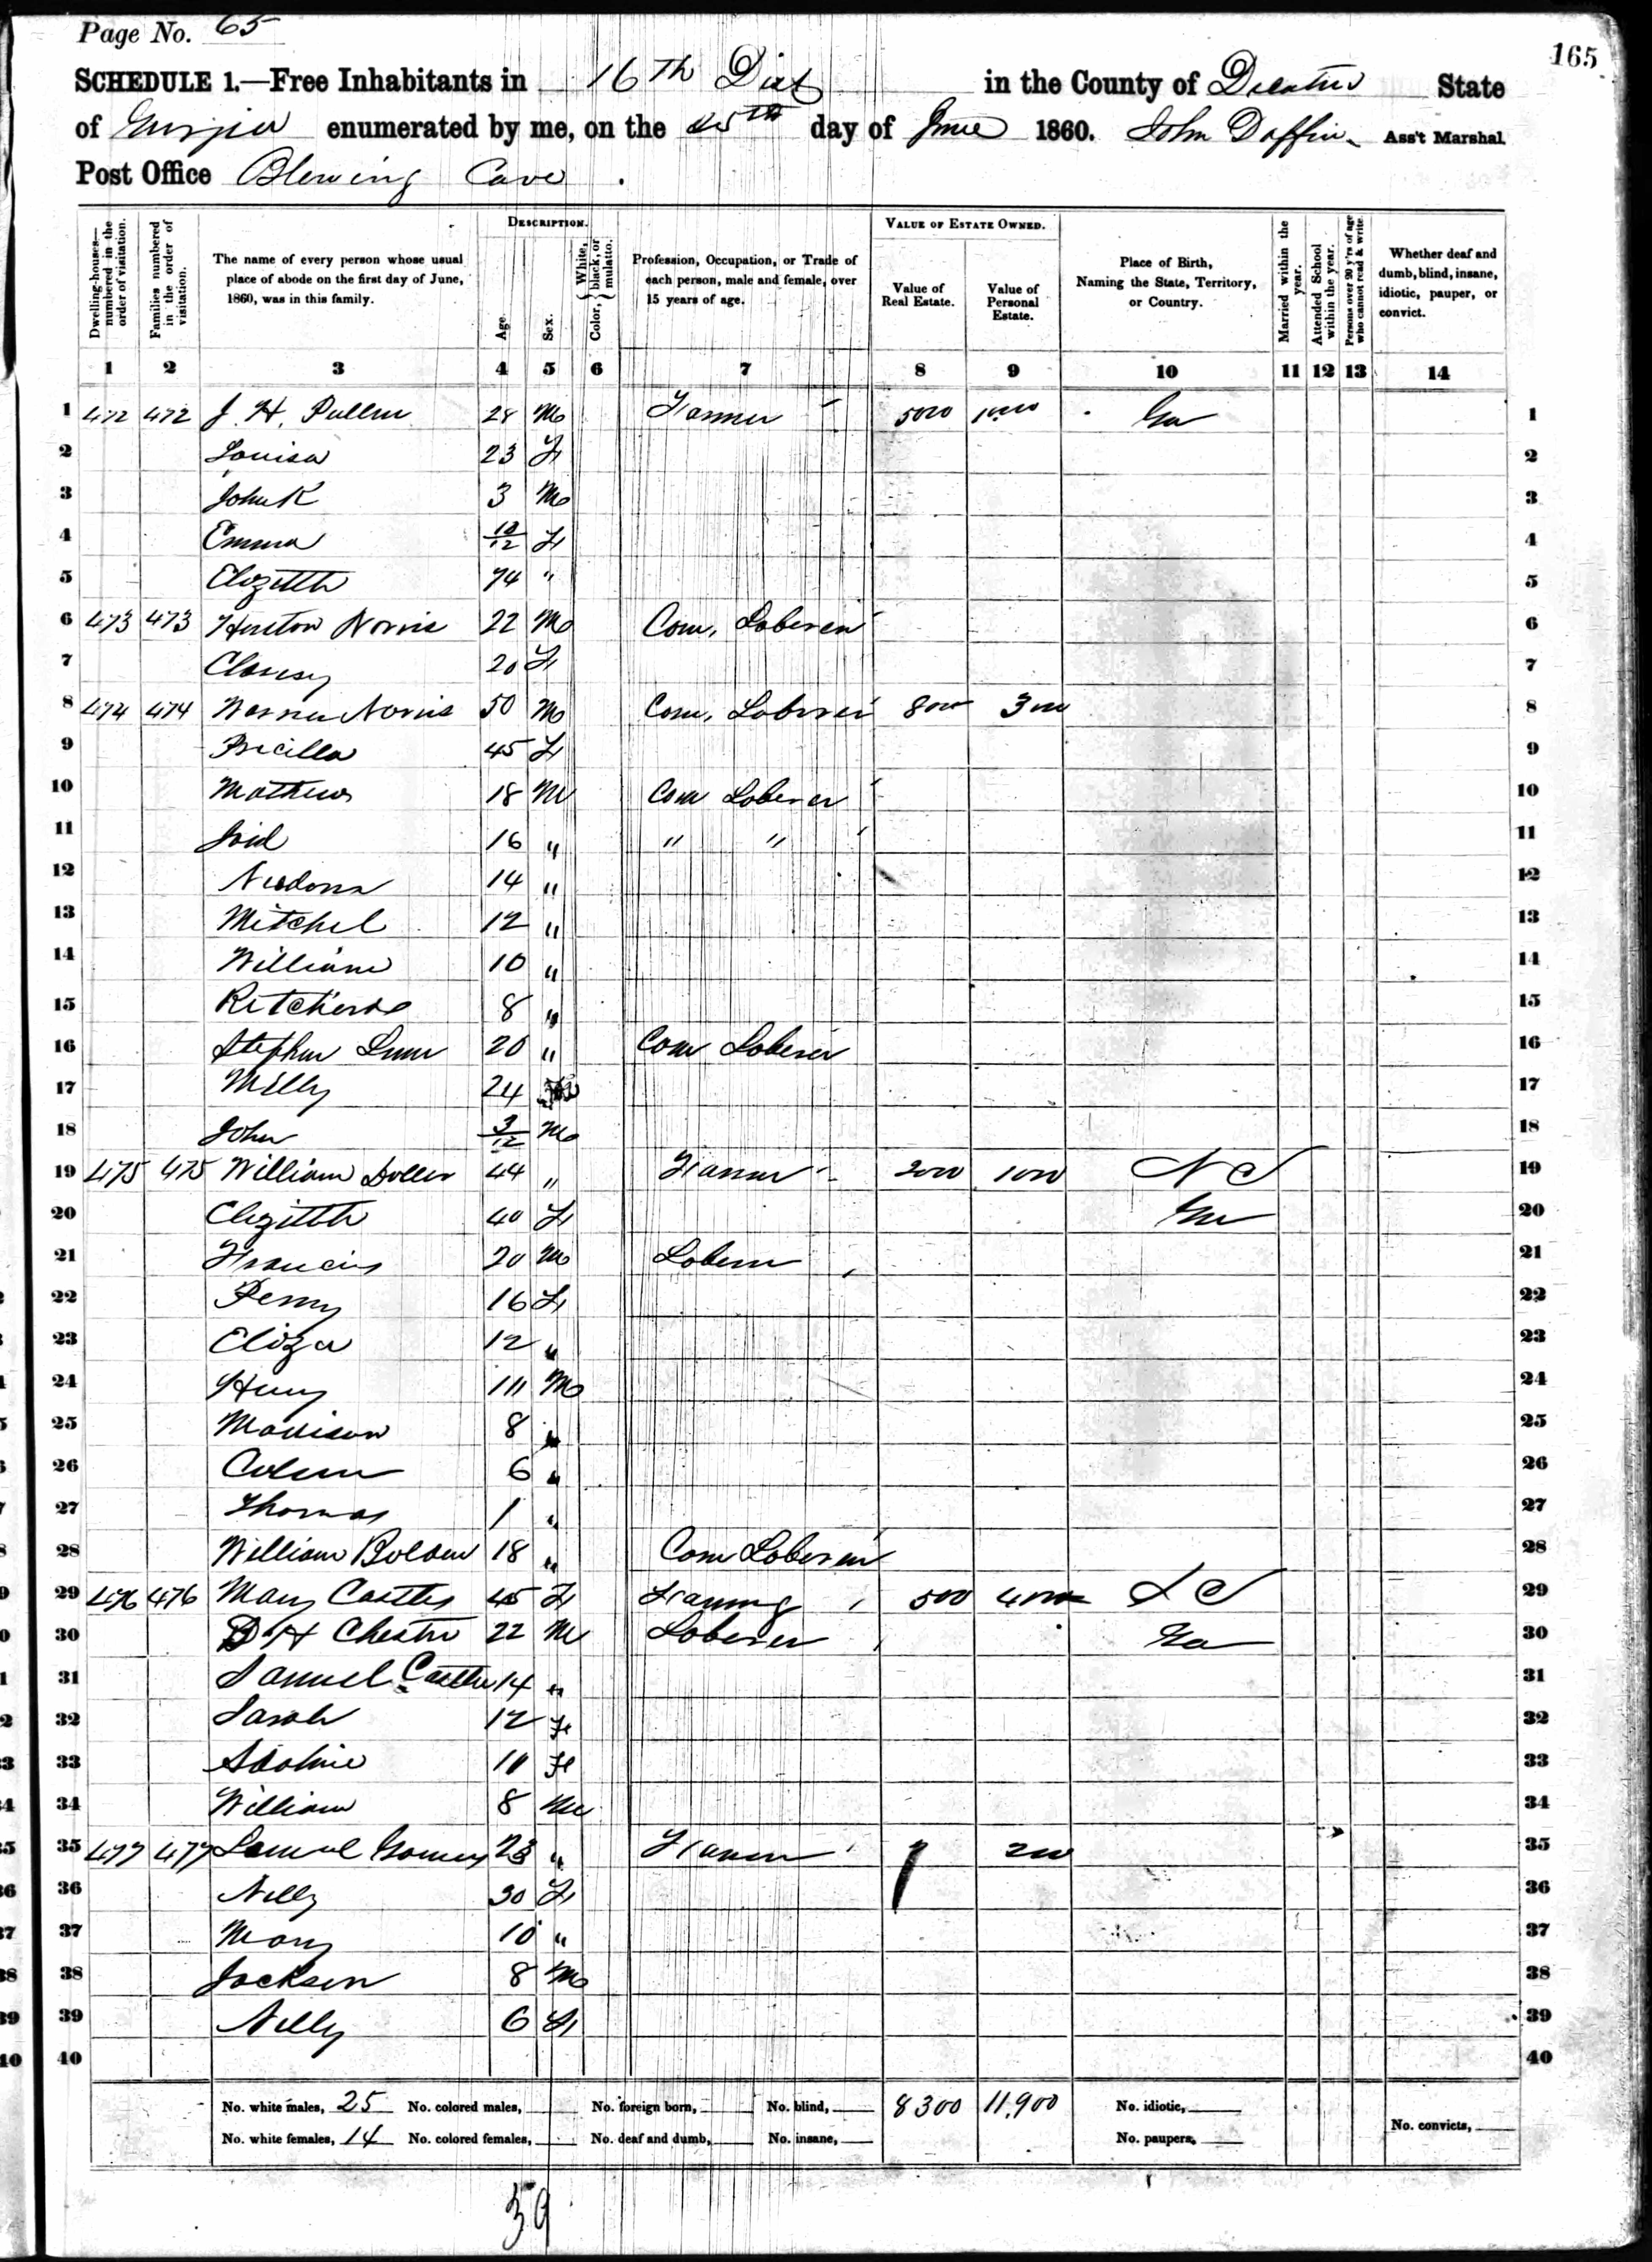 Page No. 65
165
SCHEDULE 1.—Free Inhabitants in 16th Dist in the County of Decatur State
of Georgia enumerated by me, on the 25th day of June 1860. John Daffin Ass't Marshal.
Post Office Blowing Cave.
Dwelling-houses—numbered in the order of visitation.
Families numbered in the order of visitation.
The name of every person whose usual place of abode on the first day of June, 1860, was in this family.
DESCRIPTION.
Age.
Sex.
Color, { White, black, or mulatto.
Profession, Occupation, or Trade of each person, male and female, over 15 years of age.
VALUE OF ESTATE OWNED.
Value of Real Estate.
Value of Personal Estate.
Place of Birth, Naming the State, Territory, or Country.
Married within the year.
Attended School within the year.
Persons over 20 y'rs of age who cannot read & write.
Whether deaf and dumb, blind, insane, idiotic, pauper, or convict.
1 2 3 4 5 6 7 8 9 10 11 12 13 14
1 472 472 J. H. Pullen 28 M Farmer 5000 Ga 1
2 Louisa 23 F 2
3 John K 3 M 3
4 Emma 10/12 F 4
5 Elizabeth 74 " 5
6 473 473 Norris 22 M Com. Laborer 6
7 20 F 7
8 474 474 Norris 50 M Com. Laborer 800 300 8
9 Pricilla 45 F 9
10 Mathew 18 M Com Laborer 10
11 16 " " " 11
12 14 " 12
13 Mitchel 12 " 13
14 William 10 " 14
15 8 " 15
16 Stephen 20 " Com Laborer 16
17 Milly 24 17
18 John 3/12 M 18
19 475 475 William 44 " Farmer 2000 1000 N C 19
20 Elizabeth 40 F Ga 20
21 Francis 20 M Laborer 21
22 16 F 22
23 Eliza 12 " 23
24 Henry M 24
25 Madison 8 " 25
26 6 " 26
27 Thomas 1 " 27
28 William 18 " Com Laborer 28
29 476 476 Mary 45 F Farming 500 S C 29
30 H Chester 22 M Laborer Ga 30
31 Samuel 14 " 31
32 Sarah 12 F 32
33 F 33
34 William 8 M 34
35 477 477 " Farmer 200 35
36 Nelly 30 F 36
37 Mary 10 " 37
38 Jackson 8 M 38
39 Nelly 6 F 39
40 40
No. white males, 25 No. colored males, No. foreign born, No. blind, 8300 11,900 No. idiotic,
No. white females, 14 No. colored females, No. deaf and dumb, No. insane, No. paupers, No. convicts,
39